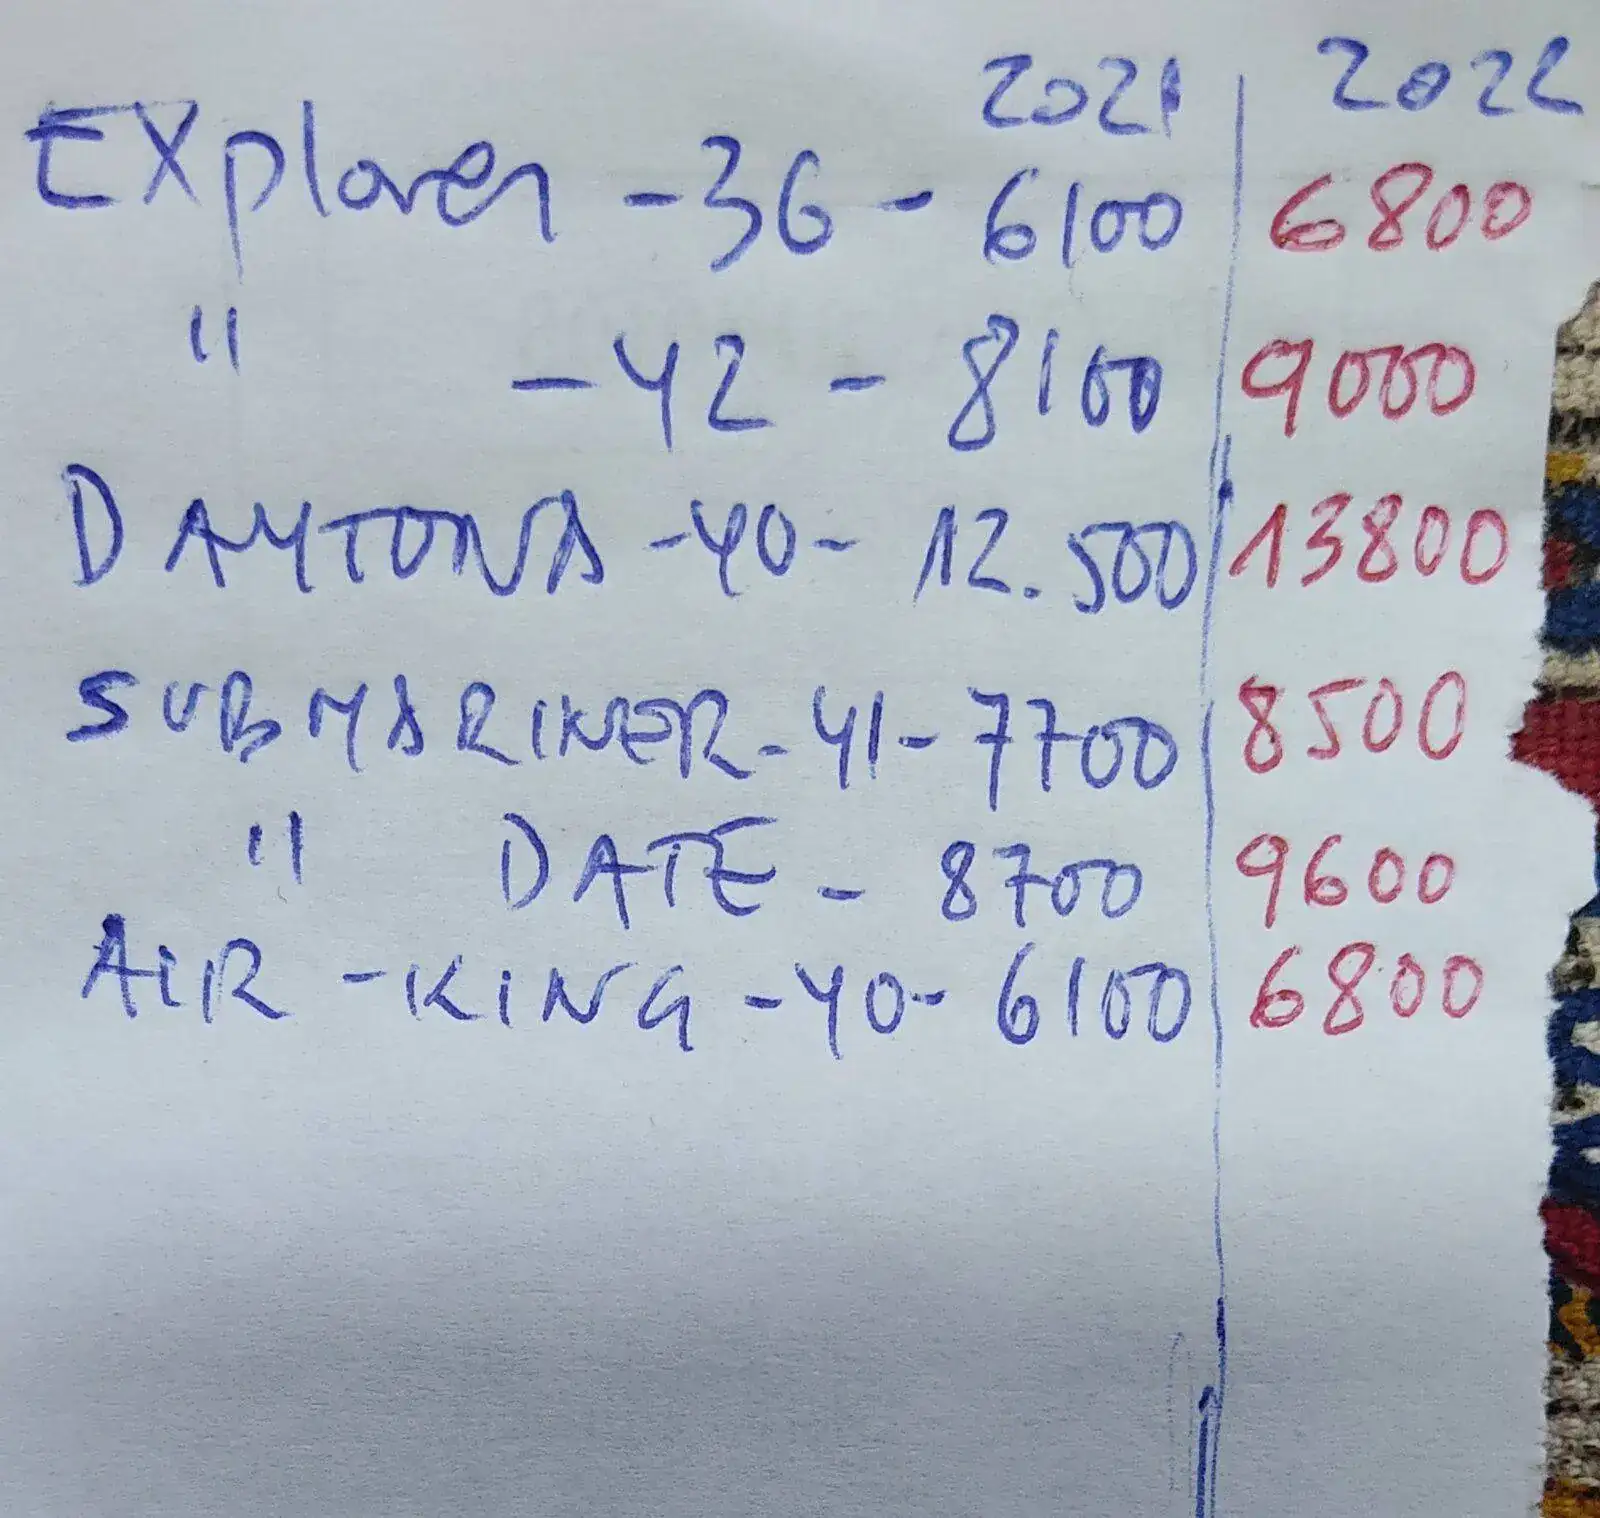 2021 | 2022
EXplorer - 36 - 6100 | 6800
" - 42 - 8100 | 9000
DAYTONA - 40 - 12.500 | 13800
SUBMARINER - 41 - 7700 | 8500
" DATE - 8700 | 9600
AIR - KING - 40 - 6100 | 6800